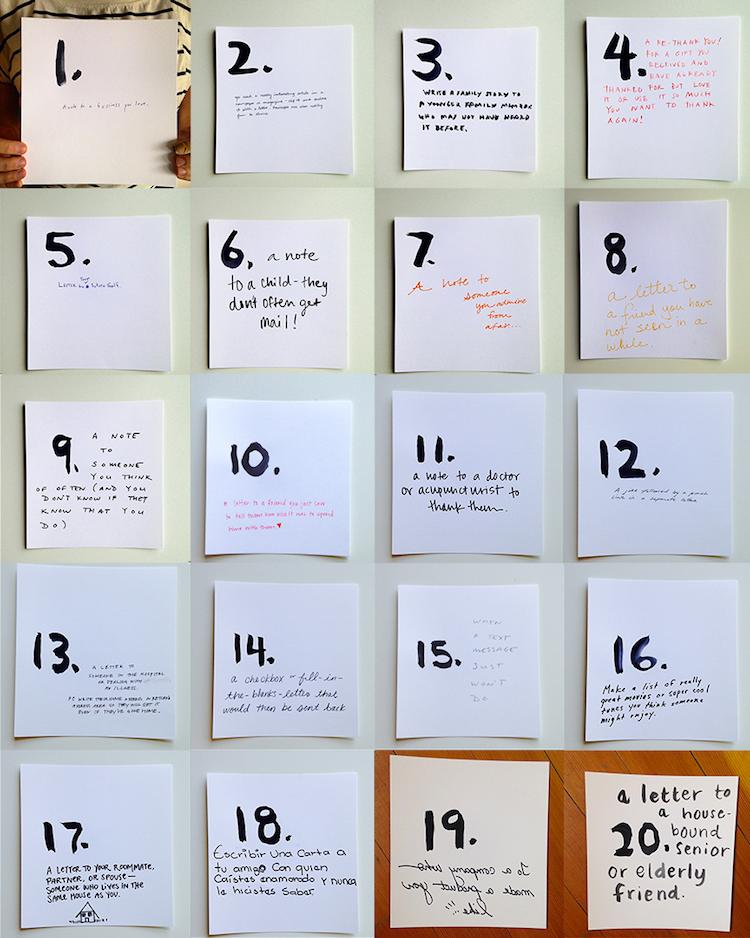 1.
A note to a business you love.
2.
3.
WRITE A FAMILY STORY TO
A YOUNGER FAMILY MEMBER
WHO MAY NOT HAVE HEARD
IT BEFORE.
4.
A RE-THANK YOU!
FOR A GIFT YOU
RECEIVED AND
HAVE ALREADY
THANKED FOR BUT LOVE
IT OR USE IT SO MUCH
YOU WANT TO THANK
AGAIN!
5.
LETTER to Future Self.
6. a note
to a child-they
dont often get
mail!
7.
A note to
someone
you admire
from
afar...
8.
a letter to
a friend you have
not seen in a
while.
9.
A NOTE
TO
SOMEONE
YOU THINK
OF OFTEN (AND YOU
DON'T KNOW IF THEY
KNOW THAT YOU
DO.)
10.
A letter to a friend you just love
to tell them how nice it was to spend
time with them ♥
11.
a note to a doctor
or acupuncturist to
thank them.
12.
A joke followed by a punch
line in a separate letter.
13.
A LETTER TO
SOMEONE IN THE HOSPITAL
OR DEALING WITH
AN ILLNESS.
P.S. WRITE THEIR HOME ADDRESS IN RETURN
ADDRESS AREA SO THEY WILL GET IT
EVEN IF THEY'VE GONE HOME.
14.
a checkbox or fill-in-
the-blanks-letter that
would then be sent back
15.
WHEN
A TEXT
MESSAGE
JUST
WON'T
DO
16.
Make a list of really
great movies or super cool
tunes you think someone
might enjoy.
17.
A LETTER TO YOUR ROOMMATE,
PARTNER, OR SPOUSE—
SOMEONE WHO LIVES IN THE
SAME HOUSE AS YOU.
18.
Escribir Una Carta a
tu amigo Con quien
Caístes enamorado y nunca
le hicistes Saber.
19.
To a company who
made a product you
like!!!
a letter to
a house-
20. bound
senior
or elderly
friend.